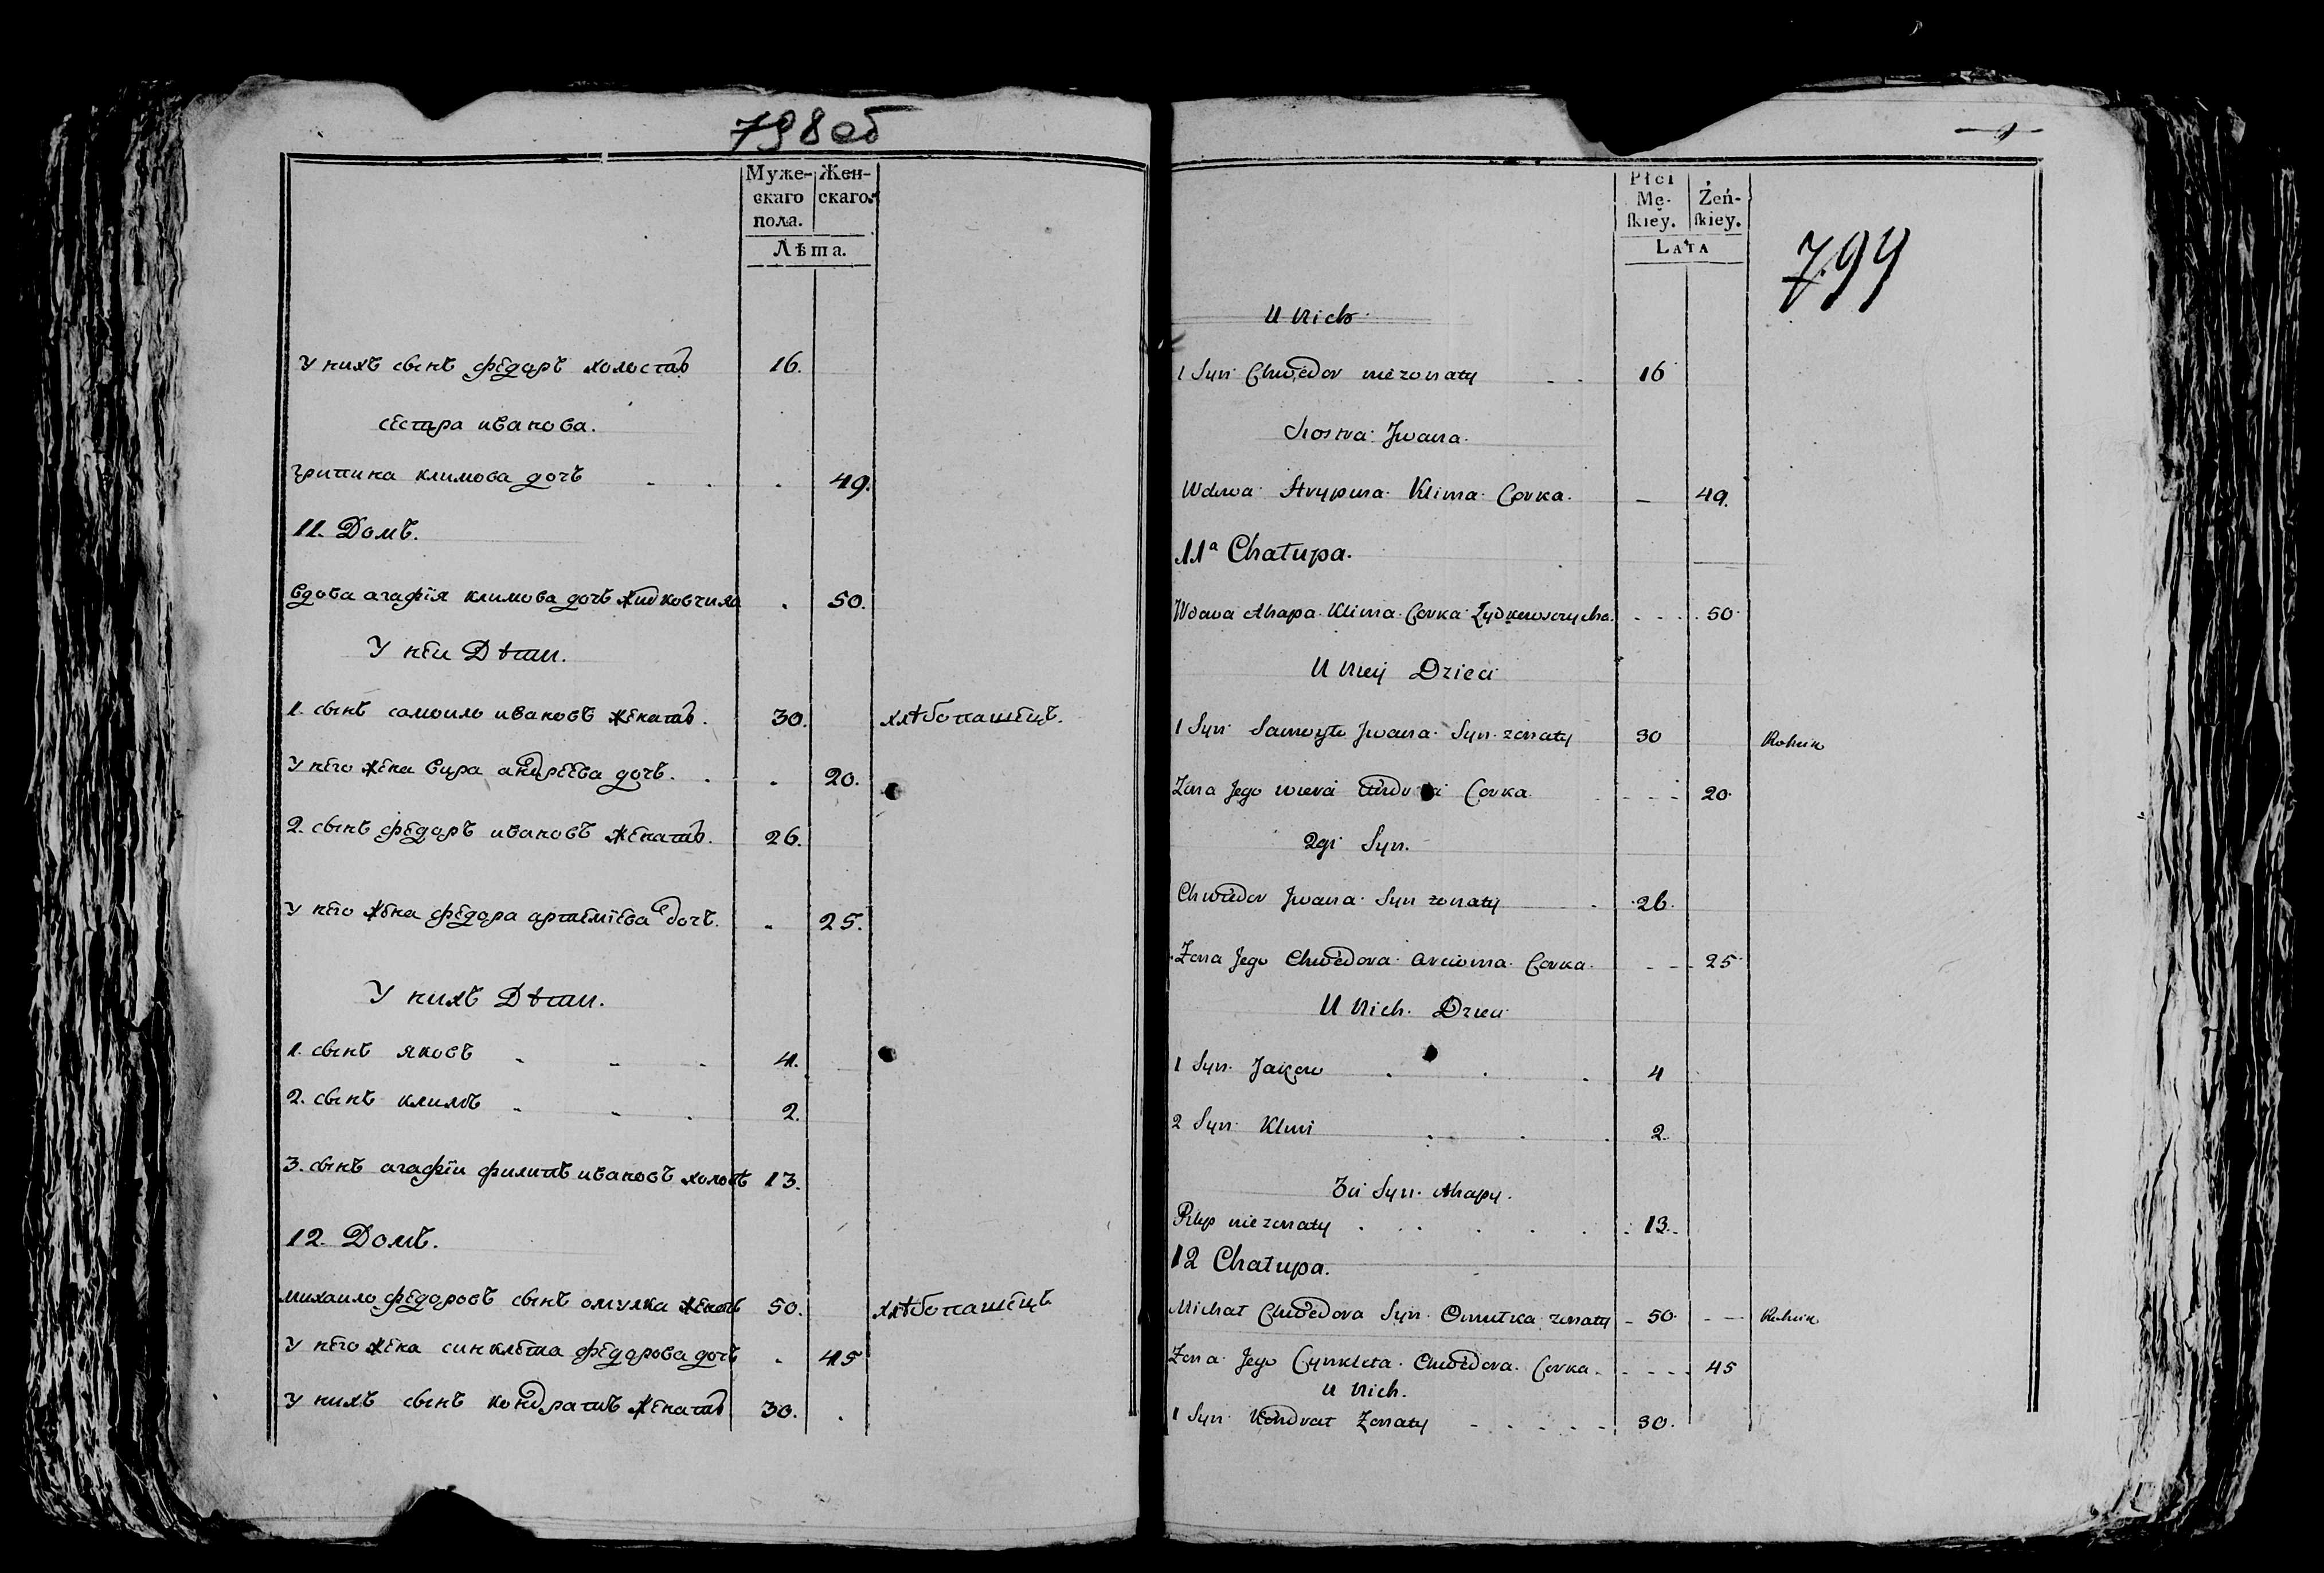 798об
Муже-
скаго
пола.
Жен-
скаго.
Лѣта.
У нихъ сынъ федоръ холостъ 16.
сестра иванова.
грипина климова дочь 49.
11. Домъ.
вдова агафія климова дочь жидковчиха 50.
У неи Дѣти.
1. сынъ самоило ивановъ женатъ. 30. хлѣбопашецъ.
У него жена вира андреева дочь. 20.
2. сынъ федоръ ивановъ женатъ. 26.
У него жена федора артемієва дочь. 25.
У нихъ Дѣти.
1. сынъ яковъ 4.
2. сынъ климъ 2.
3. сынъ агафіи филипъ ивановъ холостъ 13.
12. Домъ.
михаило федоровъ сынъ омулка женатъ 50. хлѣбопашецъ
У него жена синклета федорова дочь 45
У нихъ сынъ кондратъ женатъ 30.
Płci
Mę-
ſkiey.
Żeń-
ſkiey.
LATA
799
U Nich
1 Syn Chwedor niezonaty 16
Siostra Jwana.
Wdowa Hrypina Klima Corka. 49.
11ª Chałupa.
Wdowa Ahapa Klima Corka Żydkowszczycha. 50
U Niey Dzieci
1 Syn Samoyło Jwana Syn zonaty 30 Rolnik
Zona Jego wiera Corka 20
2gi Syn.
Chwedor Jwana Syn zonaty 26.
Zona Jego Chwedora Arcioma Corka. 25
U Nich. Dzieci
1 Syn Jakow 4
2 Syn Klim 2.
3ci Syn Ahapy.
Filip niezonaty 13.
12 Chałupa.
Michał Chwedora Syn Omułka zonaty 50 Rolnik
Zona Jego Cynkleta Chwedora Corka. 45
U Nich.
1 Syn Kondrat Zonaty 30.